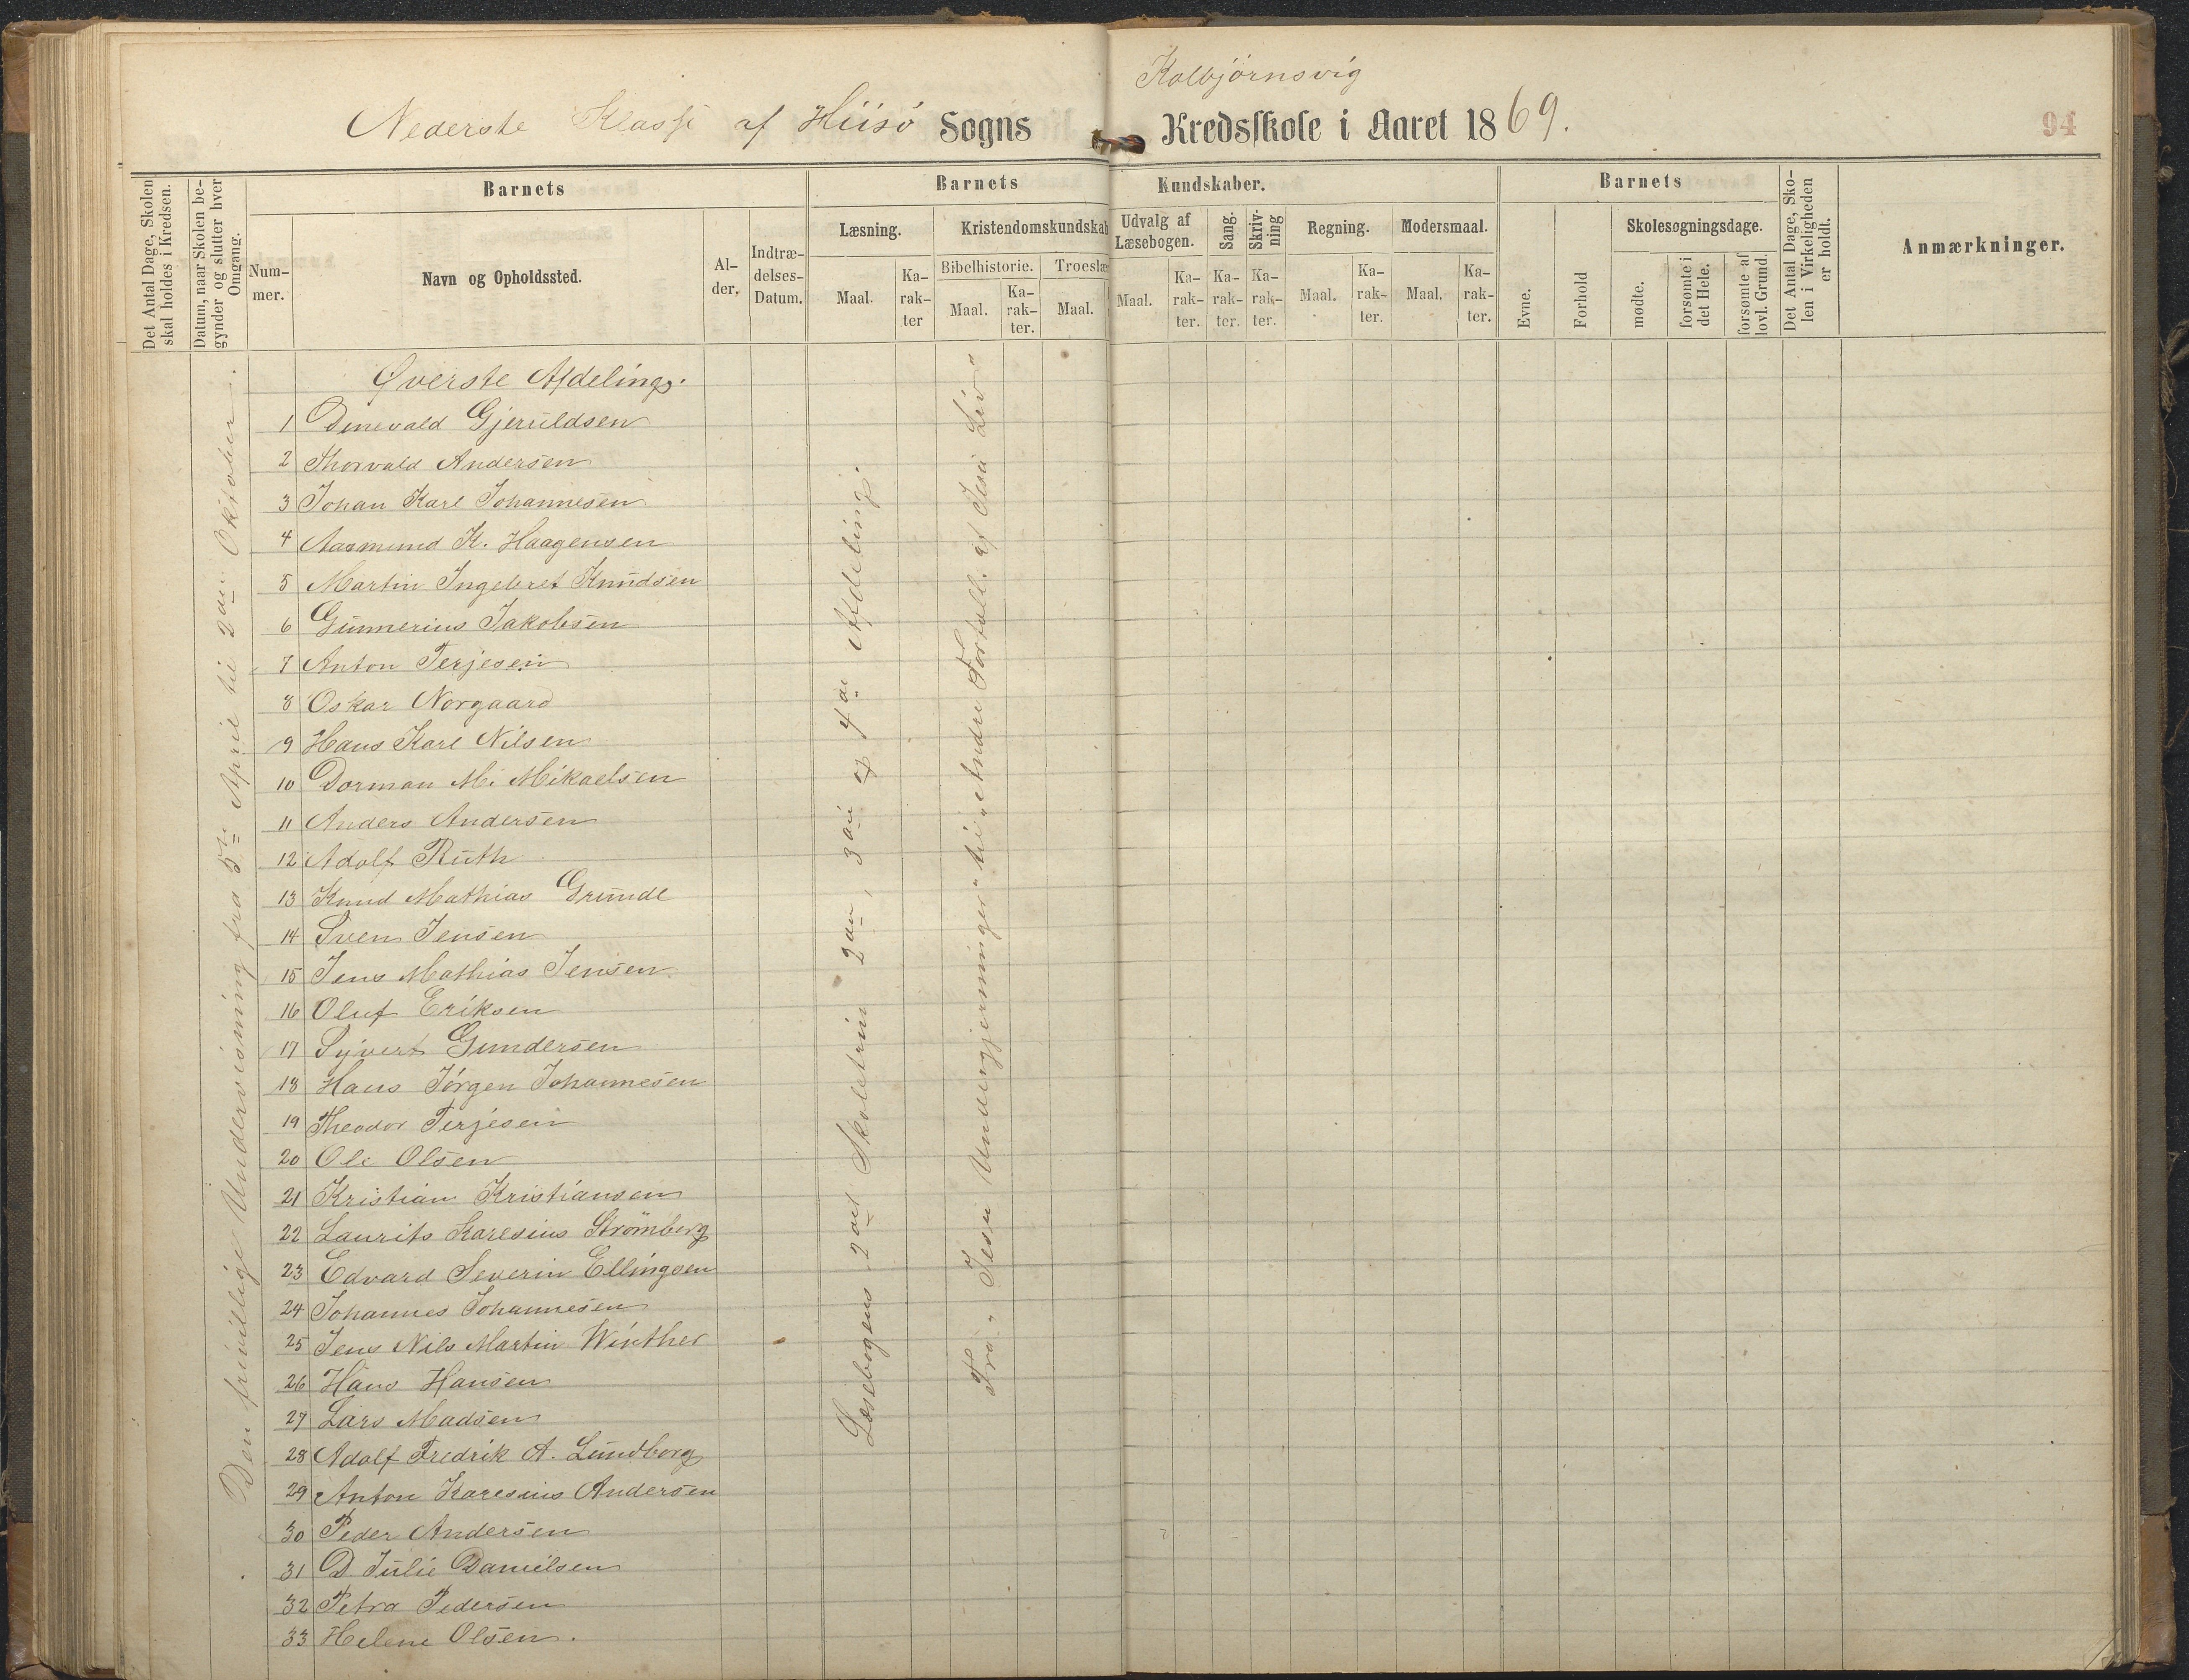 Kolbjørnsvig
Nederste Klasse af Hiisø Sogns Kredsskole i Aaret 1869.
94
Det Antal Dage, Skolen skal holdes i Kredsen.
Datum, naar Skolen begynder og slutter hver Omgang.
Barnets
Num-
mer.
Navn og Opholdssted.
Al-
der.
Indtræ-
delses-
Datum.
Barnets Kundskaber.
Læsning.
Maal.
Ka-
rak-
ter
Kristendomskundskab
Bibelhistorie.
Maal.
Ka-
rak-
ter.
Troeslæ
Maal.
Udvalg af
Læsebogen.
Maal.
Ka-
rak-
ter.
Sang.
Ka-
rak-
ter.
Skriv-
ning
Ka-
rak-
ter.
Regning.
Maal.
Ka-
rak-
ter.
Modersmaal.
Maal.
Ka-
rak-
ter.
Barnets
Evne.
Forhold
Skolesøgningsdage.
mødte.
forsømte i
det Hele.
forsømte af
lovl. Grund.
Det Antal Dage, Sko-
len i Virkeligheden
er holdt.
Anmærkninger.
Øverste Afdeling.
1 Dinevald Gjeruldsen
2 Thorvald Andersen
3 Johan Karl Johannesen
4 Aasmund K. Haagensen
5 Martin Ingebret Knudsen
6 Gunnerius Jakobsen
7 Anton Terjesen
8 Oskar Norgaard
9 Hans Karl Nilsen
10 Dorman M. Mikaelsen
11 Anders Andersen
12 Adolf Ruth
13 Knud Mathias Grunde
14 Sven Jensen
15 Jens Mathias Jensen
16 Oluf Eriksen
17 Syvert Gundersen
18 Hans Jørgen Johannesen
19 Theodor Terjesen
20 Ole Olsen
21 Kristian Kristiansen
22 Laurits Karesius Strömberg
23 Edvard Severin Ellingsen
24 Johannes Johannesen
25 Jens Nils Martin Winther
26 Hans Hansen
27 Lars Madsen
28 Adolf Fredrik A. Lundborg
29 Anton Karesius Andersen
30 Peder Andersen
31 D. Julie Danielsen
32 Petra Pedersen
33 Helene Olsen.
Den frivillige Undervisning fra 5te April til 2den Oktober.
Læsebogens 2det Skoletrin 2den, 3die og 4de Afdeling.
Fra „Jesu Undergjerninger" til „Andre Fortæll. af Jesu Liv"